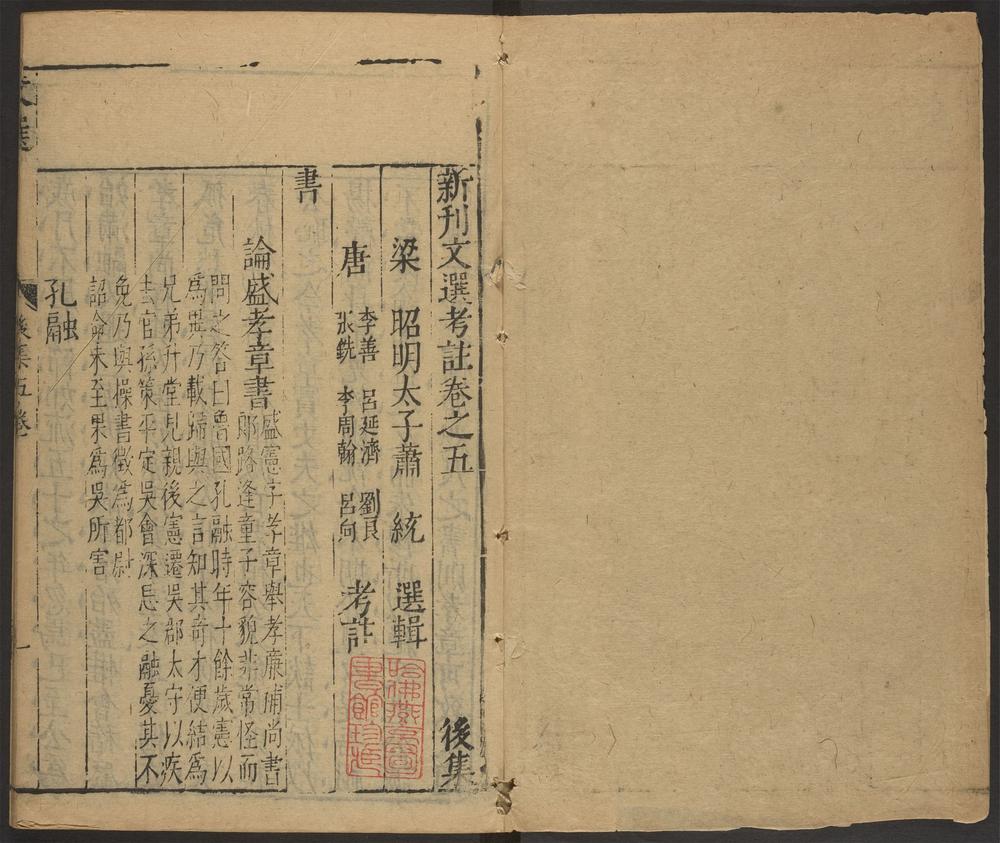 新刊文選考註卷之五 後集
梁 昭明太子蕭 統 選輯
唐 李善 呂延濟 劉良 張銑 李周翰 呂向 考註
哈佛燕京圖書館珍藏
書
論盛孝章書 盛憲字孝章舉孝廉補尚書
郎路逢童子容貌非常怪而
問之答曰魯國孔融時年十餘歲憲以
爲異乃載歸與之言知其奇才便結爲
兄弟升堂見親後憲遷吳郡太守以疾
去官孫策平定吳會深忌之融憂其不
免乃與操書徵爲都尉
詔命未至果爲吳所害
孔融
文選
後集五卷
一